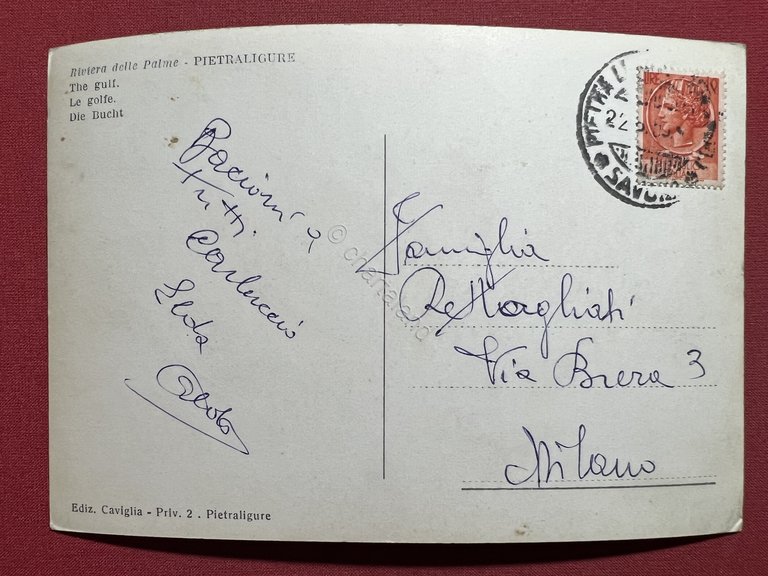 Riviera delle Palme - PIETRALIGURE
The gulf.
Le golfe.
Die Bucht
Bacioni a
tutti
Carluccio
Elda
Famiglia
Rettagliati
Via Brera 3
Milano
PIETRA LI
SAVONA
Ediz. Caviglia - Priv. 2 - Pietraligure